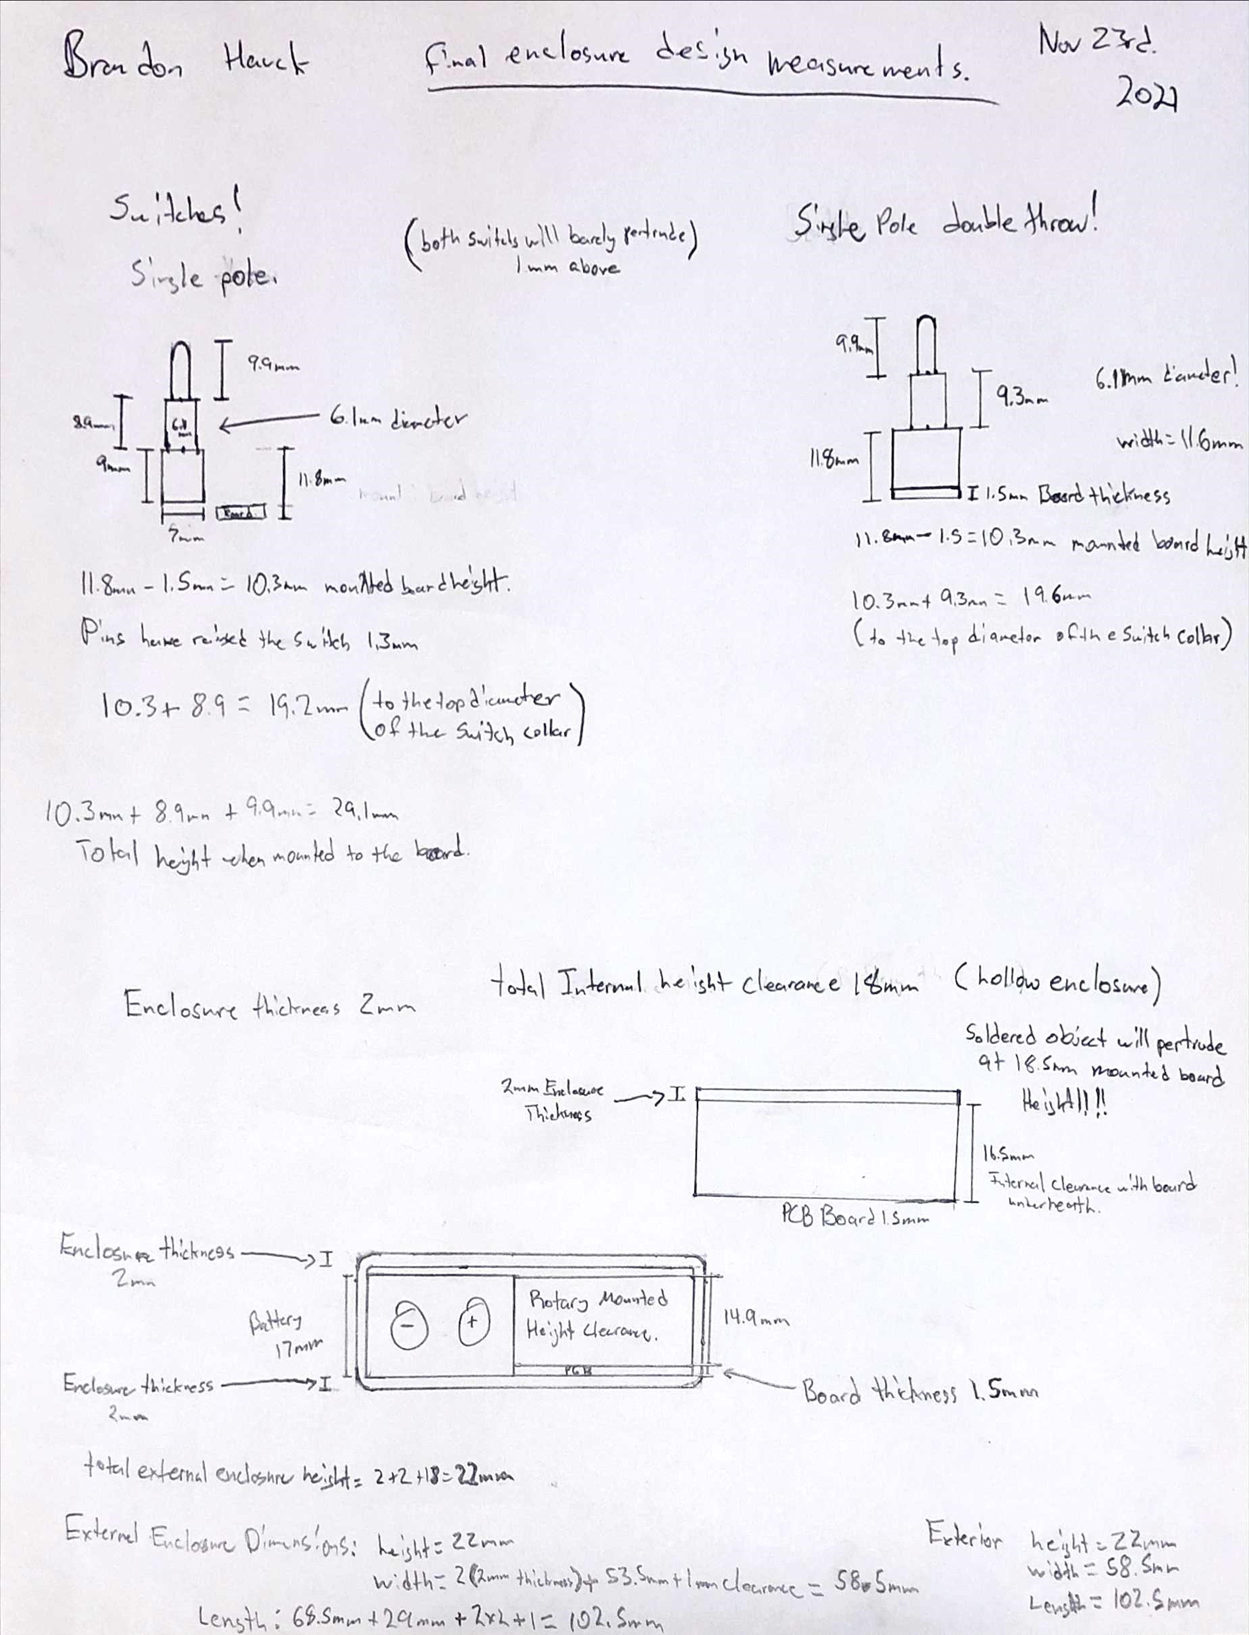 Brandon Hauck
final enclosure design measurements.
Nov 23rd.
2021
Switches!
Single pole.
(both switchs will barely pertrude)
1mm above
Single Pole double throw!
9.9mm
8.9mm
6.1
mm
6.1mm diameter
9mm
11.8mm
Board
7mm
11.8mm - 1.5mm = 10.3mm mounted board height.
Pins have raised the switch 1.3mm
10.3 + 8.9 = 19.2mm (to the top diameter
of the switch collar)
10.3mm + 8.9mm + 9.9mm = 29.1mm
Total height when mounted to the board.
9.9mm
9.3mm
6.1mm diameter!
width = 11.6mm
11.8mm
1.5mm Board thickness
11.8mm - 1.5 = 10.3mm mounted board height
10.3mm + 9.3mm = 19.6mm
(to the top diameter of the switch collar)
Enclosure thickness 2mm
total Internal height clearance 18mm (hollow enclosure)
Soldered object will pertrude
at 18.5mm mounted board
Height!!!!
2mm Enclosure
Thickness
16.5mm
Internal clearance with board
underneath.
PCB Board 1.5mm
Enclosure thickness
2mm
Battery
17mm
- +
Rotary Mounted
Height Clearance.
PCB
14.9mm
Enclosure thickness
2mm
Board thickness 1.5mm
total external enclosure height = 2+2+18=22mm
External Enclosure Dimensions: height = 22mm
width = 2(2mm thickness) + 53.5mm + 1mm clearance = 58.5mm
Length: 68.5mm + 29mm + 2x2 + 1 = 102.5mm
Exterior height = 22mm
width = 58.5mm
Length = 102.5mm